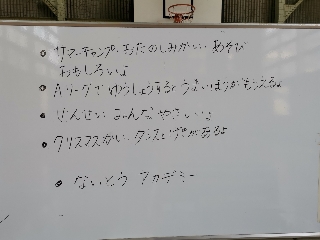 サマーチャンプ、おたのしみかい、あそび
おもしろいよ
Aリーグでゆうしょうすると うまいぼうがもらえるよ
せんせい みんな やさしいよ
クリスマスかい、ダンスとかがあるよ
ないとう アカデミー